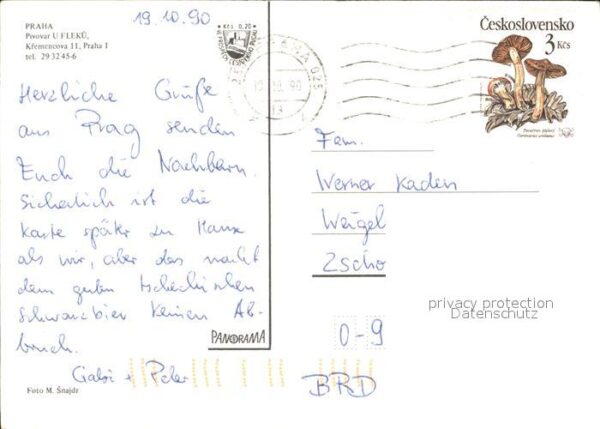 19.10.90
PRAHA
Pivovar U FLEKŮ,
Křemencova 11, Praha 1
tel. 29 32 45-6
Kčs 0,20
Československo
3 Kčs
PRAHA 025
Herzliche Grüße
aus Prag senden
Euch die Nachbarn.
Sicherlich ist die
Karte später zu Hause
als wir, aber das macht
dem guten tschechischen
Schwarzbier keinen Ab-
bruch.
Gabi + Peter
PANORAMA
Foto M. Šnajdr
Fam.
Werner Kaden
Weigel
Zscho
privacy protection
Datenschutz
0-9
BRD